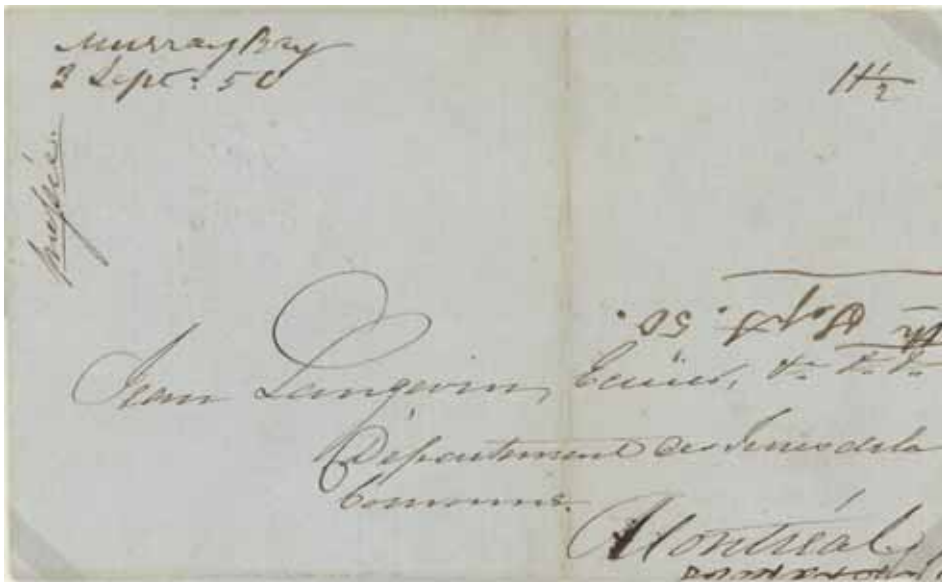 Murray Bay
3 Sept: 50
11½
Sept. 50.
Jean Langevin, Ecuier, &c. &c. &c.
Département des Terres de la
Couronne.
Montréal